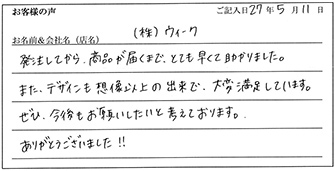 お客様の声 ご記入日27年5月11日
お名前&会社名(店名) (株)ウィーク
発注してから、商品が届くまで、とても早くて助かりました。
また、デザインも想像以上の出来で、大変満足しています。
ぜひ、今後もお願いしたいと考えております。
ありがとうございました!!